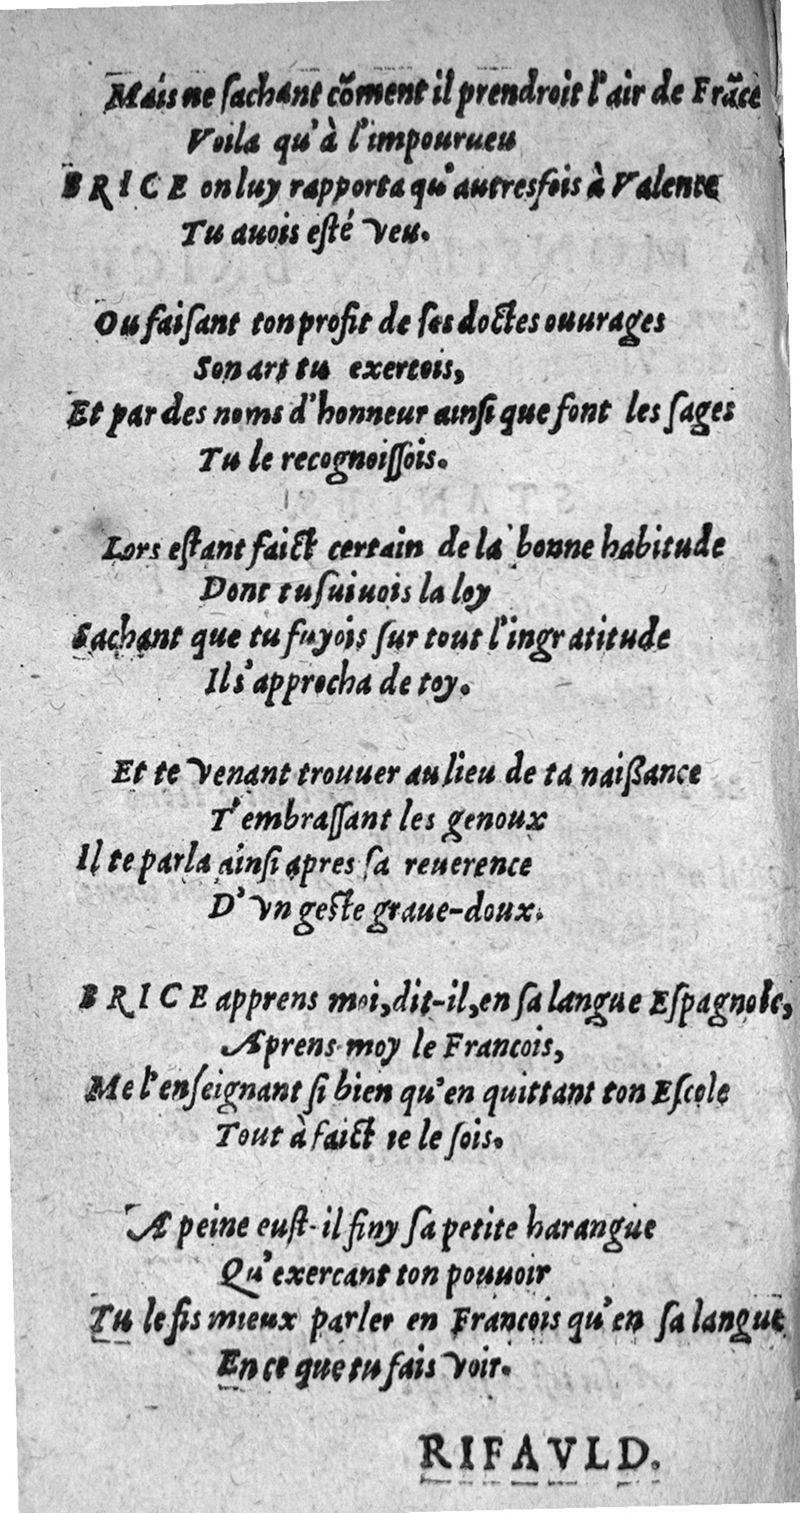 Mais ne ſachant cõment il prendroit l'air de Frãce
Voila qu'à l'impourueu
BRICE on luy rapporta qu'autresfois à Valence
Tu auois eſté veu.
Ou faiſant ton profit de ſes doctes ouurages
Son art tu exercois,
Et par des noms d'honneur ainſi que font les ſages
Tu le recognoiſſois.
Lors eſtant faict certain de la bonne habitude
Dont tu ſuiuois la loy
Sachant que tu fuyois ſur tout l'ingratitude
Il s'approcha de toy.
Et te venant trouuer au lieu de ta naiſſance
T'embraſſant les genoux
Il te parla ainſi apres ſa reuerence
D'vn geſte graue-doux.
BRICE apprens moi, dit-il, en ſa langue Eſpagnole,
Aprens moy le Francois,
Me l'enſeignant ſi bien qu'en quittant ton Eſcole
Tout à faict ie le ſois.
A peine euſt-il finy ſa petite harangue
Qu'exercant ton pouuoir
Tu le fis mieux parler en Francois qu'en ſa langue
En ce que tu fais voir.
RIFAVLD.